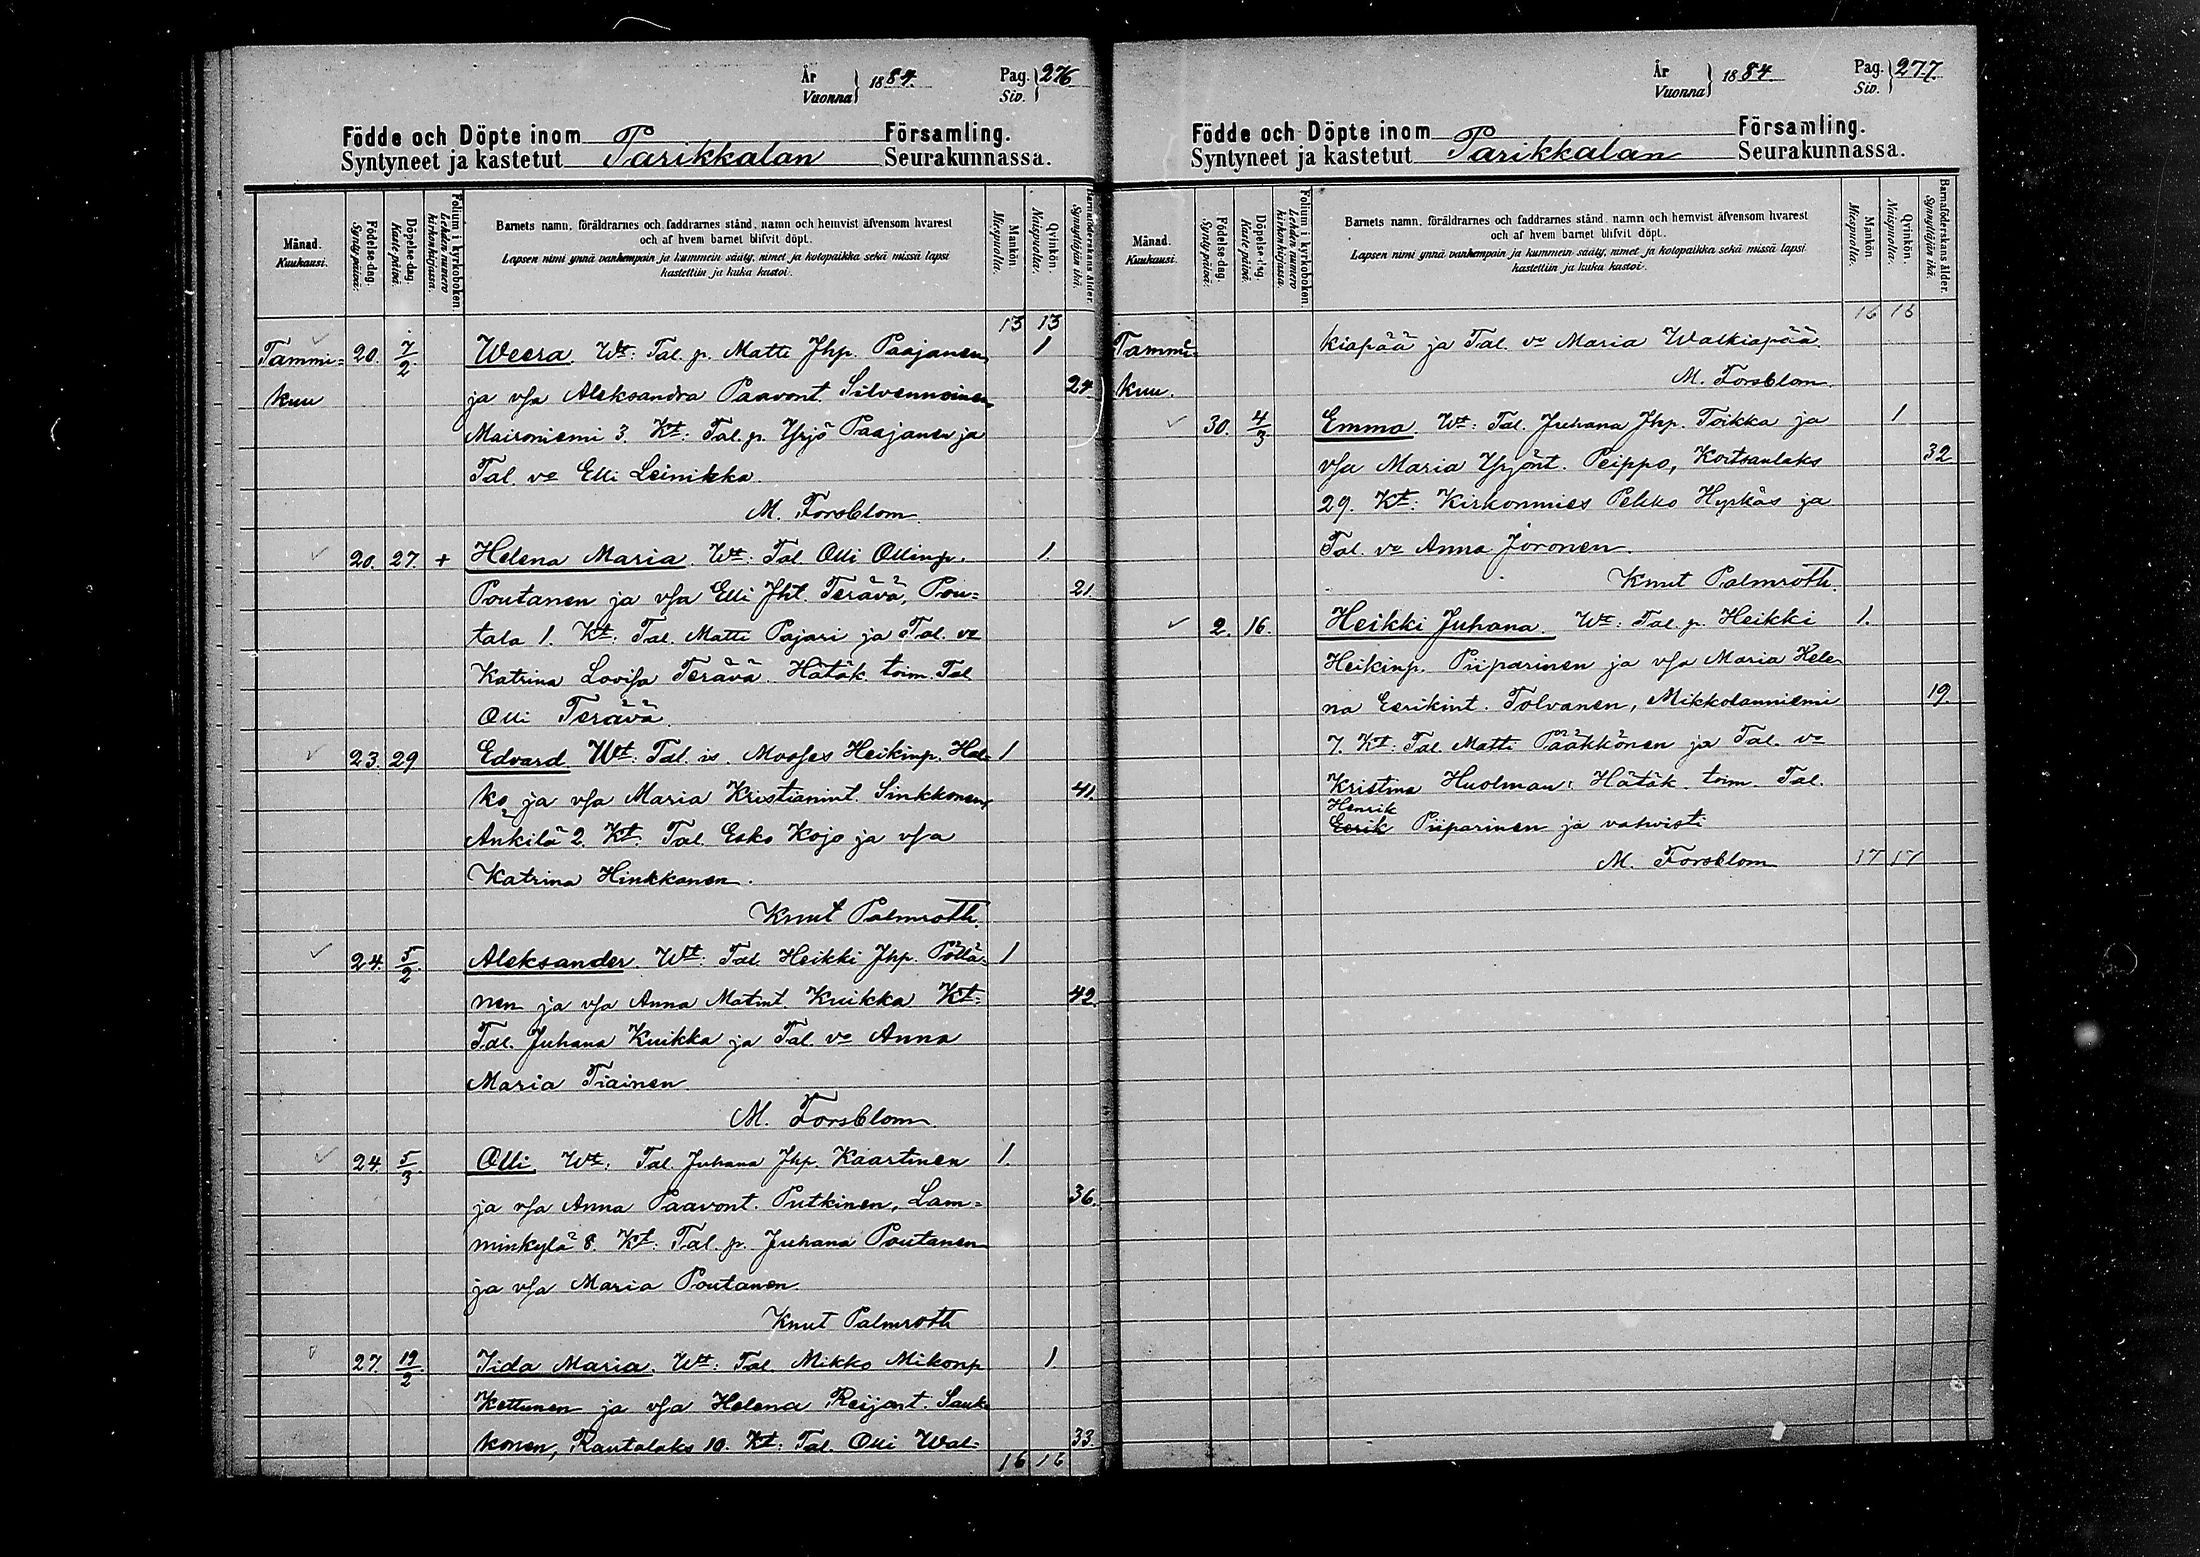 År Vuonna 1884. Pag. Siv. 276
Födde och Döpte inom Församling.
Syntyneet ja kastetut Parikkalan Seurakunnassa.
Månad. Kuukausi.
Födelse-dag. Synty päivä.
Döpelse-dag. Kaste päivä.
Folium i kyrkoboken. Lehden numero kirkonkirjassa.
Barnets namn, föräldrarnes och faddrarnes stånd, namn och hemvist äfvensom hvarest
och af hvem barnet blifvit döpt.
Lapsen nimi ynnä vanhempain ja kummein sääty, nimet ja kotopaikka sekä missä lapsi
kastettiin ja kuka kastoi.
Mankön Miespuolia.
Qvinkön. Naispuolia.
Barnaföderskans ålder. Synnyttäjän ikä.
13 13
Tammi= 20. 7/2 Weera. Wt: Tal. p. Matti Jhp. Paajanen 1
kuu ja vsa Aleksandra Paavont. Silvennoinen 24
Maironiemi 3. Kt: Tal. p. Yrjö Paajanen ja
Tal. vo Elli Leinikka.
M. Forsblom.
20. 27. + Helena Maria. Wt: Tal. Olli Ollinp. 1.
Poutanen ja vsa Elli Jht. Terävä, Pou= 21.
tala 1. Kt: Tal. Matti Pajari ja Tal. vo
Katrina Lovisa Terävä. Hätäk. toim. Tal
Olli Terävä.
23. 29 Edvard. Wt: Tal. is. Mooses Heikinp. Hal= 1
ko ja vsa Maria Kristianint. Sinkkonen, 41.
Ankilä 2. Kt. Tal. Esko Kojo ja vsa
Katrina Hinkkanen.
Knut Palmroth.
24. 5/2. Aleksander. Wt: Tal. Heikki Jhp. Pöllä= 1
nen ja vsa Anna Matint. Kuikka Kt: 42.
Tal. Juhana Kuikka ja Tal. vo Anna
Maria Tiainen
M. Forsblom.
24. 5/3. Olli. Wt: Tal. Juhana Jhp. Kaartinen 1.
ja vsa Anna Paavont. Putkinen, Lam= 36.
minkylä 8. Kt: Tal. p. Juhana Poutanen
ja vsa Maria Poutanen.
Knut Palmroth
27. 19/2 Iida Maria. Wt: Tal. Mikko Mikonp 1.
Kettunen ja vsa Helena Reijont. Sauk
konen, Rautalaks 10. Kt: Tal. Olli Wal= 33.
16 16
År Vuonna 1884 Pag. Siv. 277.
Födde och Döpte inom Församling.
Syntyneet ja kastetut Parikkalan Seurakunnassa.
Månad. Kuukausi.
Födelse-dag. Synty päivä.
Döpelse-dag. Kaste päivä.
Folium i kyrkoboken. Lehden numero kirkonkirjassa.
Barnets namn, föräldrarnes och faddrarnes stånd, namn och hemvist äfvensom hvarest
och af hvem barnet blifvit döpt.
Lapsen nimi ynnä vanhempain ja kummein sääty, nimet ja kotopaikka sekä missä lapsi
kastettiin ja kuka kastoi.
Mankön Miespuolia.
Qvinkön. Naispuolia.
Barnaföderskans ålder. Synnyttäjän ikä.
16 16
Tammi= kiapää ja Tal. vo Maria Walkiapää.
kuu. M. Forsblom.
30. 4/3 Emma. Wt: Tal. Juhana Jhp. Toikka ja 1
vsa Maria Yrjönt. Peippo, Koitsanlaks 32
29. Kt: Kirkonmies Pekko Hyrkäs ja
Tal. vo Anna Joronen.
Knut Palmroth.
2. 16. Heikki Juhana. Wt: Tal. p. Heikki 1.
Heikinp. Piiparinen ja vsa Maria Hele
na Eerikint. Tolvanen, Mikkolanniemi 19.
7. Kt: Tal. Matti Pääkkönen ja Tal. vo
Kristina Huolman: Hätäk. toim. Tal.
Henrik
Eerik Piiparinen ja vahvisti
M. Forsblom 17 17